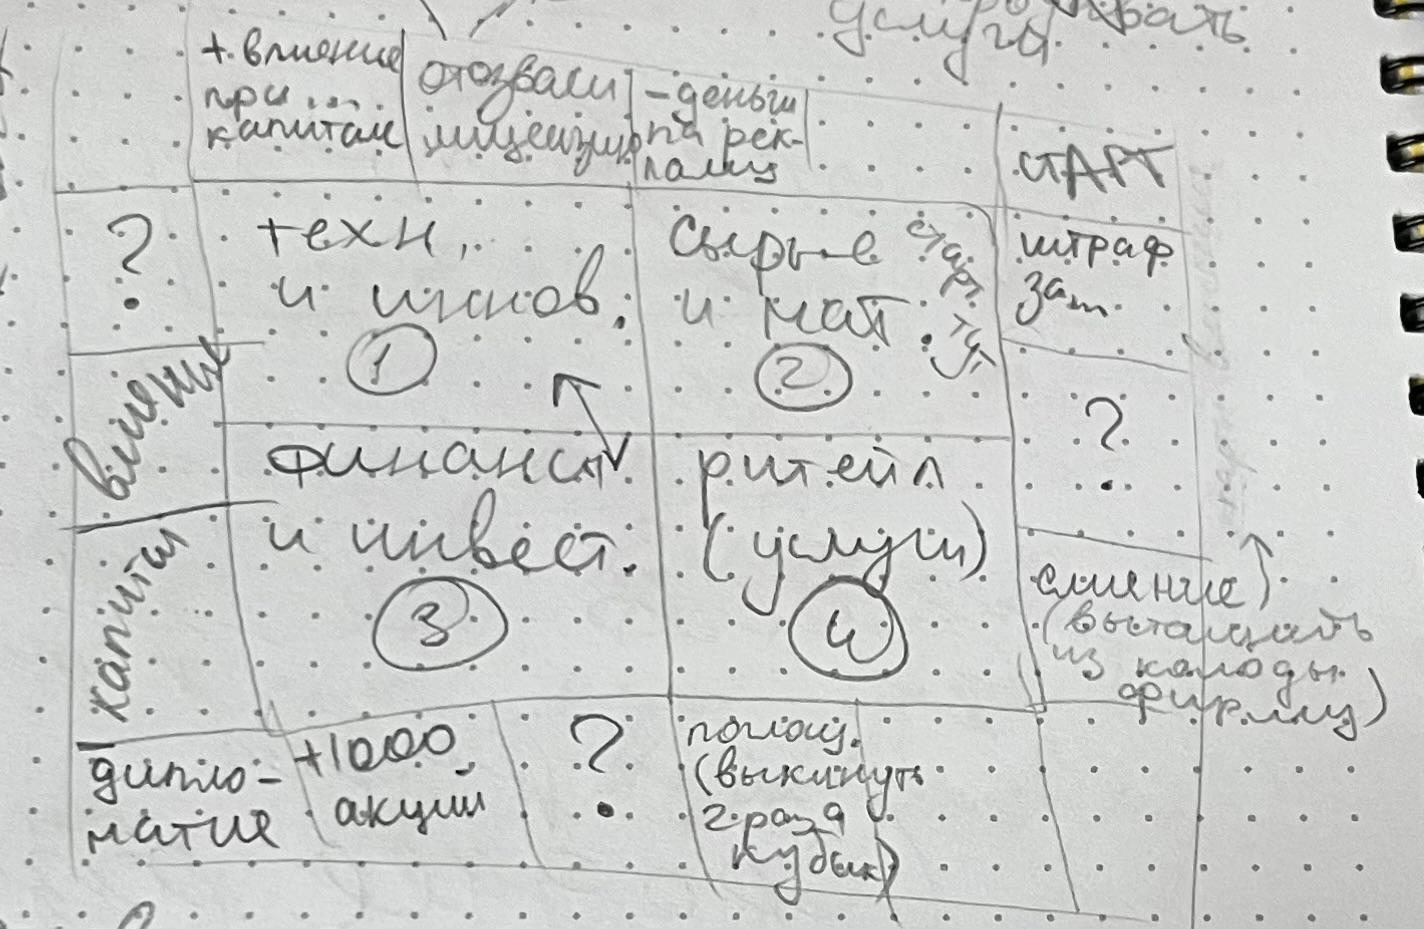 услуги
+ влияние
при ...
капитал
отозвали
лицензию
- деньги
на рек-
ламу
СТАРТ
?
техн.
и иннов.
1
сырье
и мат.
старт.
2
штраф
зат
влияние
?
финанс
и инвест.
3
ритейл
(услуги)
4
капитал
слияние
(вытащить
из колоды
фирму)
дипло-
матия
+1000
акций
?
поглощ.
(выкинуть
2 раза
кубик)